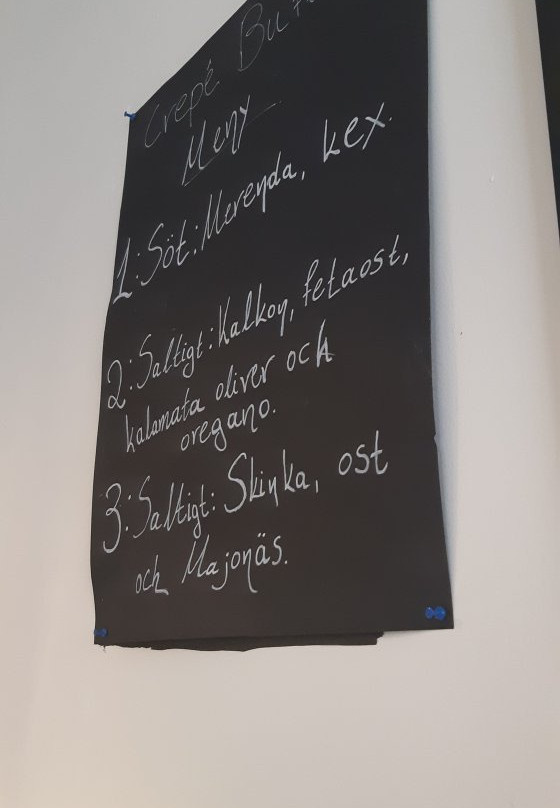 Crepé
Meny
1: Söt: Merenda, kex.
2: Saltigt: Kalkon, fetaost,
kalamata oliver och
oregano.
3: Saltigt: Skinka, ost
och Majonäs.